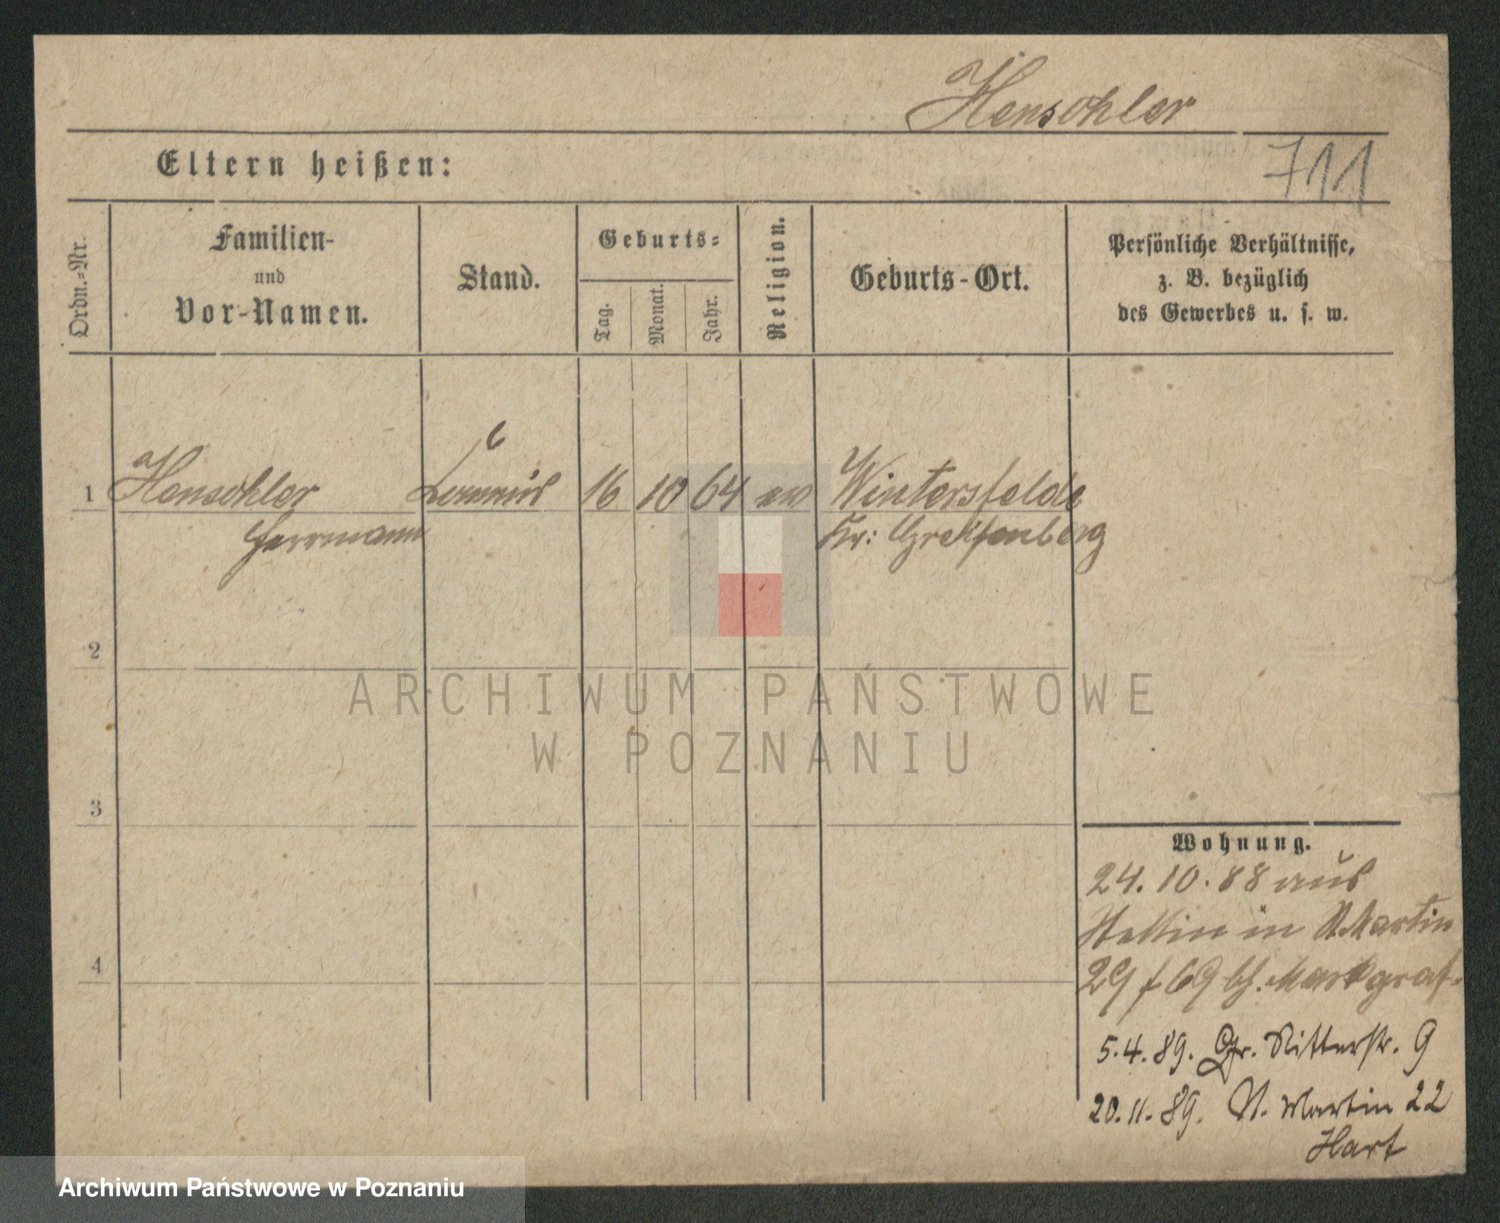 Hensohler
711
Eltern heißen:
Ordn.-Nr.
Familien-
und
Vor-Namen.
Stand.
Geburts-
Tag.
Monat.
Jahr.
Religion.
Geburts-Ort.
Persönliche Verhältnisse,
z. B. bezüglich
des Gewerbes u. s. w.
1 Hensohler 16 10 64 ev Wintersfelde
Herrmann Kr: Greifenberg
2
3
4
Wohnung.
24.10.88 aus
Stettin in St. Martin
29 b. Markgraf
5.4.89. Gr. Ritterstr. 9
20.11.89. St. Martin 22
Hart
ARCHIWUM PAŃSTWOWE
W POZNANIU
Archiwum Państwowe w Poznaniu